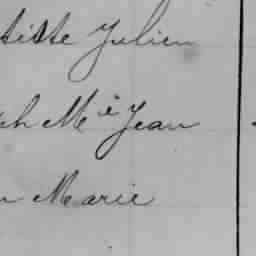 tiste Julien
ph M i Jean
n Marie